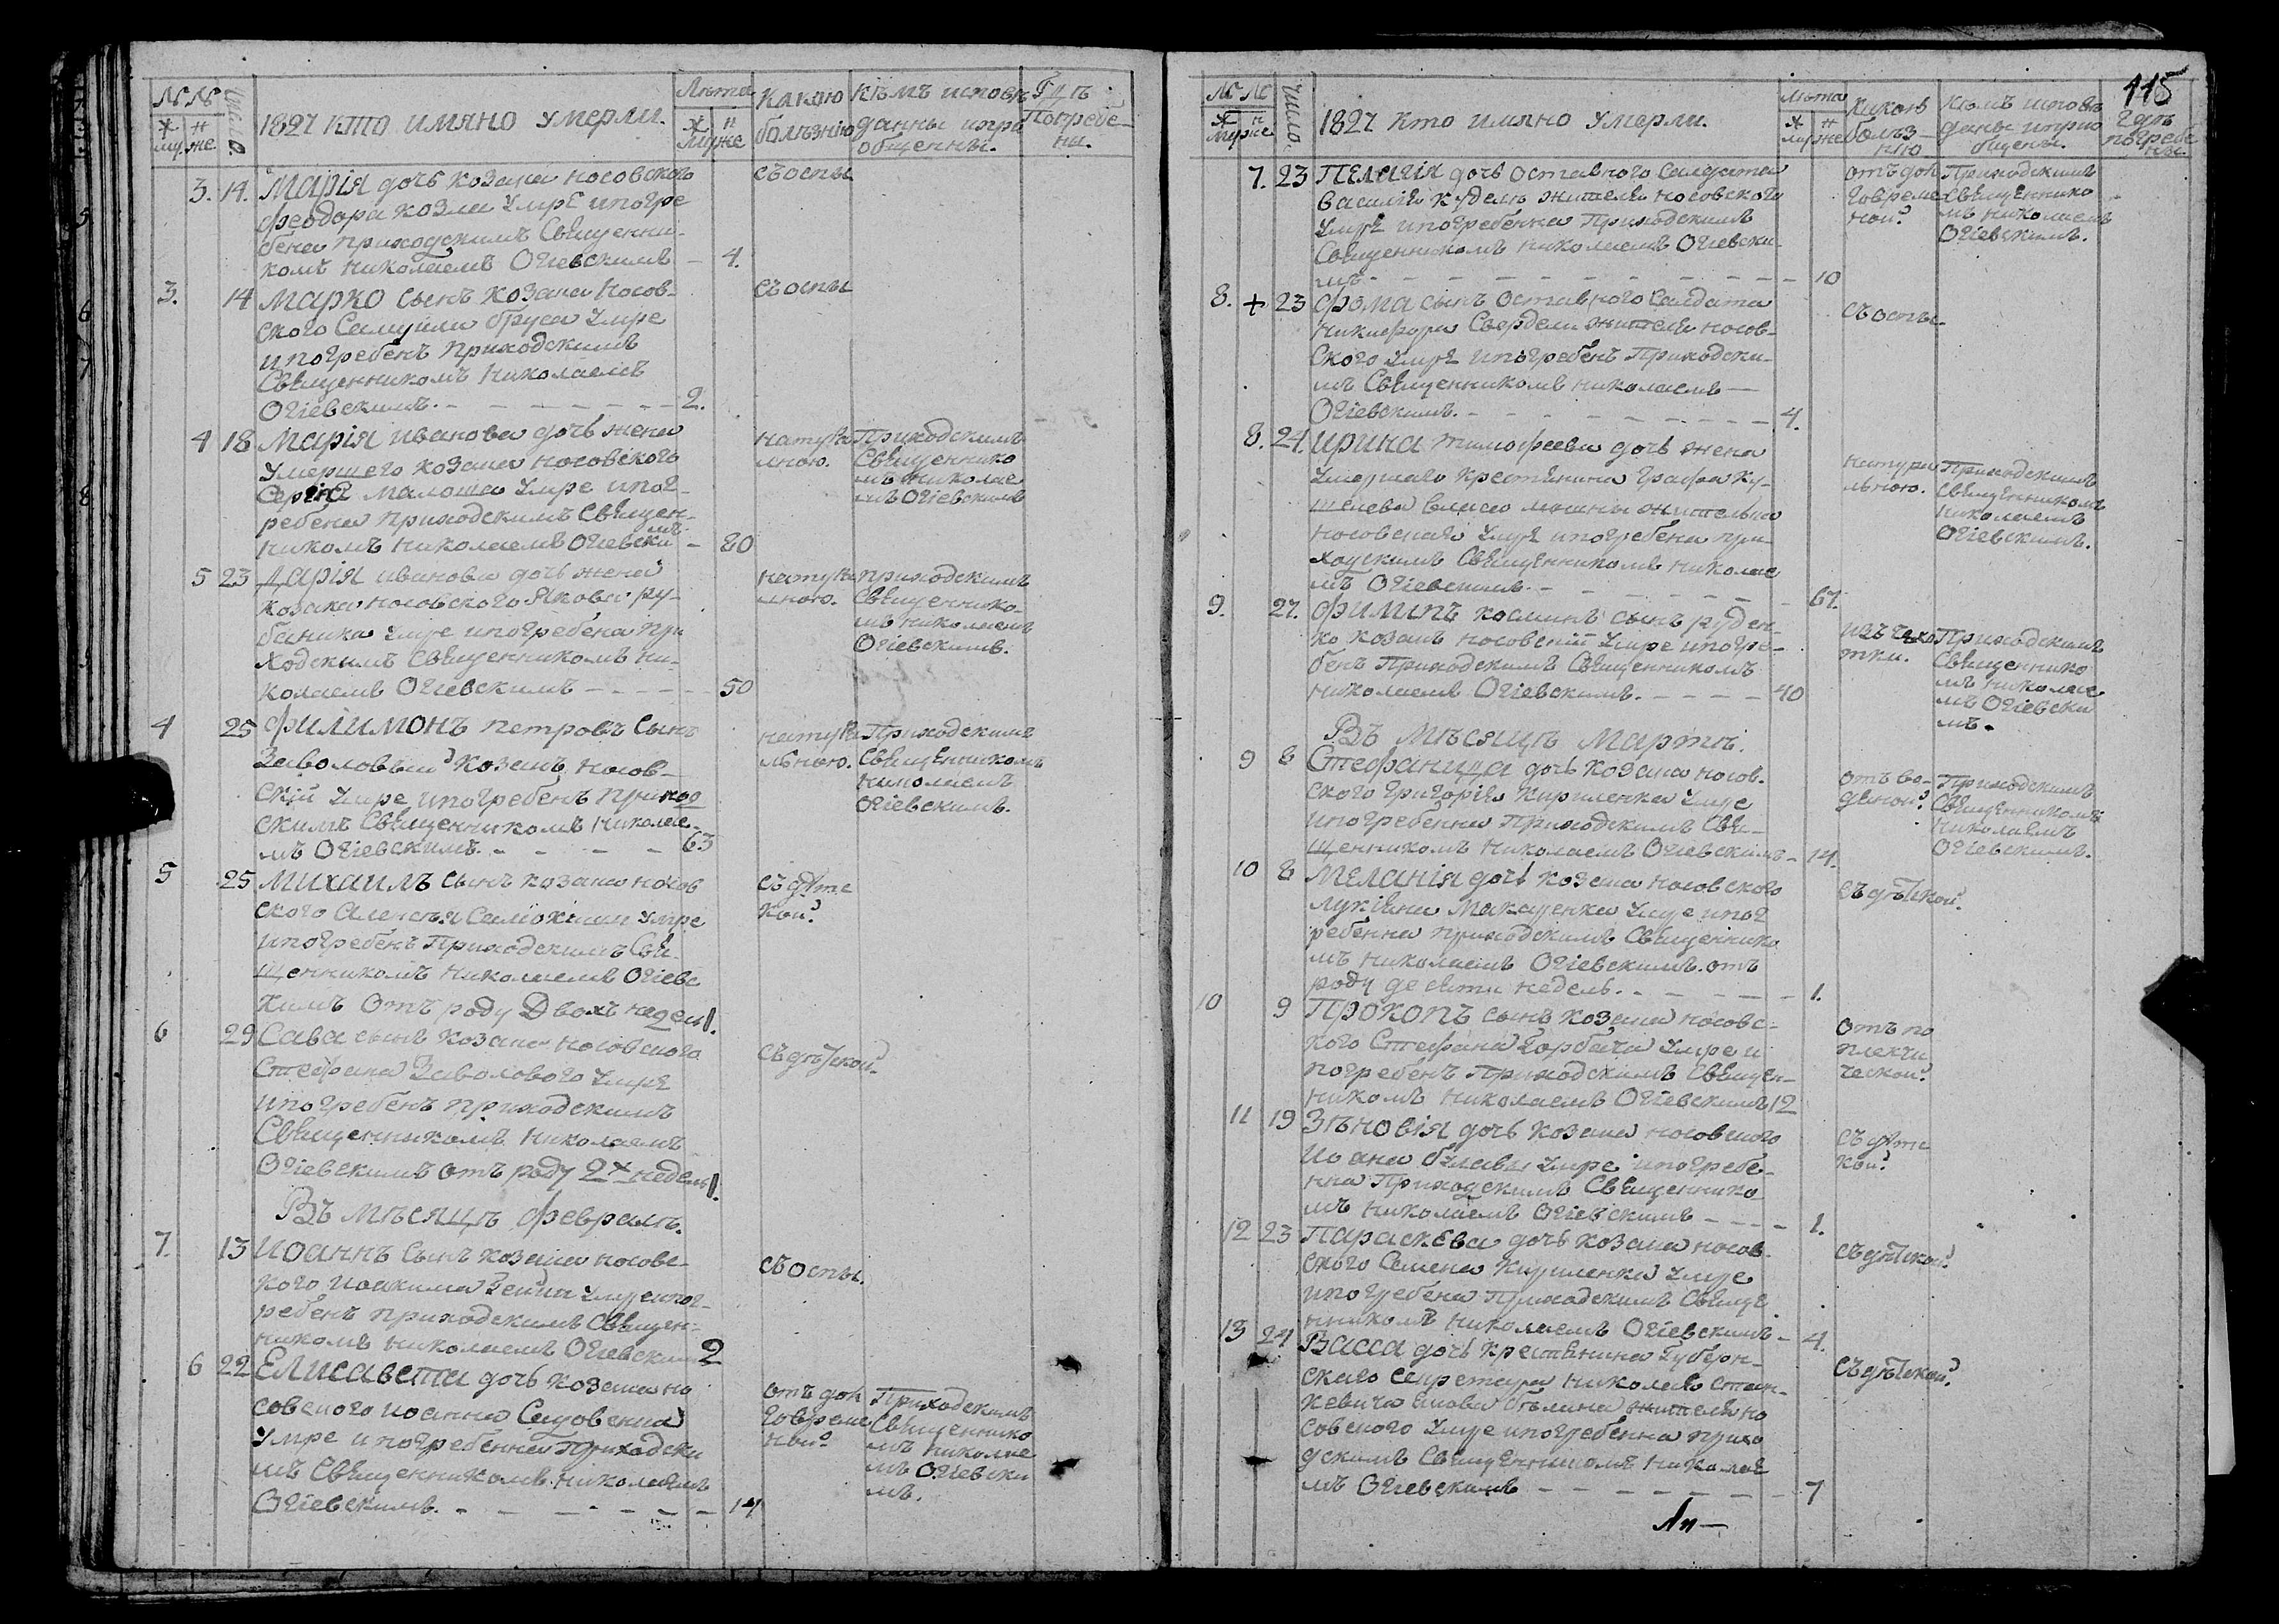 № №
муж же
число.
1827 кто имяно умерли.
Лѣта
муж же
какою
болѣзнію
кѣмъ исповѣ
данны и при
общенны.
Гдѣ
Погребе-
ны.
3. 14. Марія дочь козака носовского съ оспы
Феодора Козла умре и погре
бена приходскимъ Священни-
комъ Николаемъ Огіевскимъ — 4.
3. 14 Марко сынъ козака Носов- съ оспы
ского Самуила Бруса умре
и погребенъ Приходскимъ
Священникомъ Николаемъ
Огіевскимъ. — 2.
4 18 Марія Иванова дочь жена
умершего козака носовского
Сергія Малоша умре и пог-
ребена приходскимъ Священ-
никомъ Николаемъ Огіевскимъ — 80
натура
лною.
Приходскимъ
Священнико
мъ Николае
мъ Огіевскимъ
5 23 Дарія Иванова дочь жена
козака носовского Якова Ру-
баника умре и погребена при
ходскимъ Священникомъ Ни-
колаемъ Огіевскимъ — 50
натура
лною.
приходскимъ
Священнико-
мъ Николаемъ
Огіевскимъ.
4 25 Филимонъ Петровъ сынъ
Заволовый козакъ носов-
скій умре и погребенъ приход
скимъ Священникомъ Николае-
мъ Огіевскимъ. — 63
натура
льною.
Приходскимъ
Священникомъ
Николаемъ
Огіевскимъ.
5 25 Михаилъ сынъ козака носов
ского Алексѣя умре
и погребенъ Приходскимъ Свя-
щенникомъ Николаемъ Огіевс
кимъ отъ роду Двохъ недель 1.
съ дѣтс
кой
6 29 Сава сынъ козака носовского
Стефана Заволового умре
и погребенъ приходскимъ
Священникомъ Николаемъ
Огіевскимъ отъ роду 2х недель 1.
съ дѣтской
Въ мѣсяцѣ Февралѣ.
7. 13 Иоаннъ сынъ козака носовс-
кого Иоакима умре и пог-
ребенъ приходскимъ Священ-
никомъ Николаемъ Огіевским 2
съ оспы.
6 22 Елисавета дочь козака но
совского Иоанна
умре и погребенна Приходски
мъ Священникомъ Николаемъ
Огіевскимъ. — 14
отъ дол
говреме
ной
Приходскимъ
Священнико
мъ Николае
мъ Огіевски
мъ.
115
№ №
муж же
число.
1827 Кто имяно Умерли.
Лѣта
муж же
Какою
болѣз-
нію
Кѣмъ исповѣ
даны и прио
бщены.
Гдѣ
погребе
ны.
7. 23 Пелагія дочь отставного Салдата
Василія Куделя жителя носовского
умре и погребенна Приходскимъ
Священникомъ Николаемъ Огіевски-
мъ — 10
отъ дол
говреме
ной
Приходскимъ
Священнико
мъ Николаемъ
Огіевскимъ.
8. + 23 Фома сынъ отставного Салдата
Никифора Свердела жителя носов-
ского умре и погребенъ Приходски-
мъ Священникомъ Николаемъ —
Огіевскимъ. — 4.
съ оспы.
8. 24. Ирина Тимофеева дочь жена
умершаго Крестянина графа Ку-
шелева жителька
носовскаго умре и погребена при-
ходскимъ Священникомъ Николае
мъ Огіевскимъ. — 67.
натура
льною.
Приходскимъ
Священникомъ
Николаемъ
Огіевскимъ.
9. 27. Филипъ Косминъ сынъ Руден-
ко козакъ носовскій умре и погре-
бенъ Приходскимъ Священникомъ
Николаемъ Огіевскимъ. — 40
изъ чахо
тки.
Приходскимъ
Священнико
мъ Николае
мъ Огіевски
мъ.
Въ Мѣсяцѣ Мартѣ.
9 8 Стефанида дочь козака носов-
ского Григорія Кириленка умре
и погребенна Приходскимъ Свя-
щенникомъ Николаемъ Огіевскимъ — 14.
отъ во-
дяной
Приходскимъ
Священникомъ
Николаемъ
Огіевскимъ.
10 8 Меланія дочь козака носовского
Лукіяна Макаренка умре и пог
ребенна приходскимъ Священнико
мъ Николаемъ Огіевскимъ. отъ
роду девяти недель. — 1.
съ дѣтской.
10 9 Прокопъ сынъ козака носовс-
кого Стефана Горбача умре и
погребенъ Приходскимъ Священ-
никомъ Николаемъ Огіевскимъ 12
отъ по
плекчи
ческой
11 19 Зѣновія дочь козака носовского
Иоана Булавы умре и погребе-
нна Приходскимъ Священнико
мъ Николаемъ Огіевскимъ — 1.
съ дѣтс
кой
12 23 Параскева дочь козака носов-
ского Семена Кириленка умре
и погребена Приходскимъ Священ
никомъ Николаемъ Огіевскимъ — 4.
съ дѣтской
13 24 Васса дочь крестянина Губерн-
скаго Секретара Николая Стан-
кевича жителя но
совского умре и погребенна прихо
дскимъ Священникомъ Николае
мъ Огіевскимъ — 7
съ дѣтской